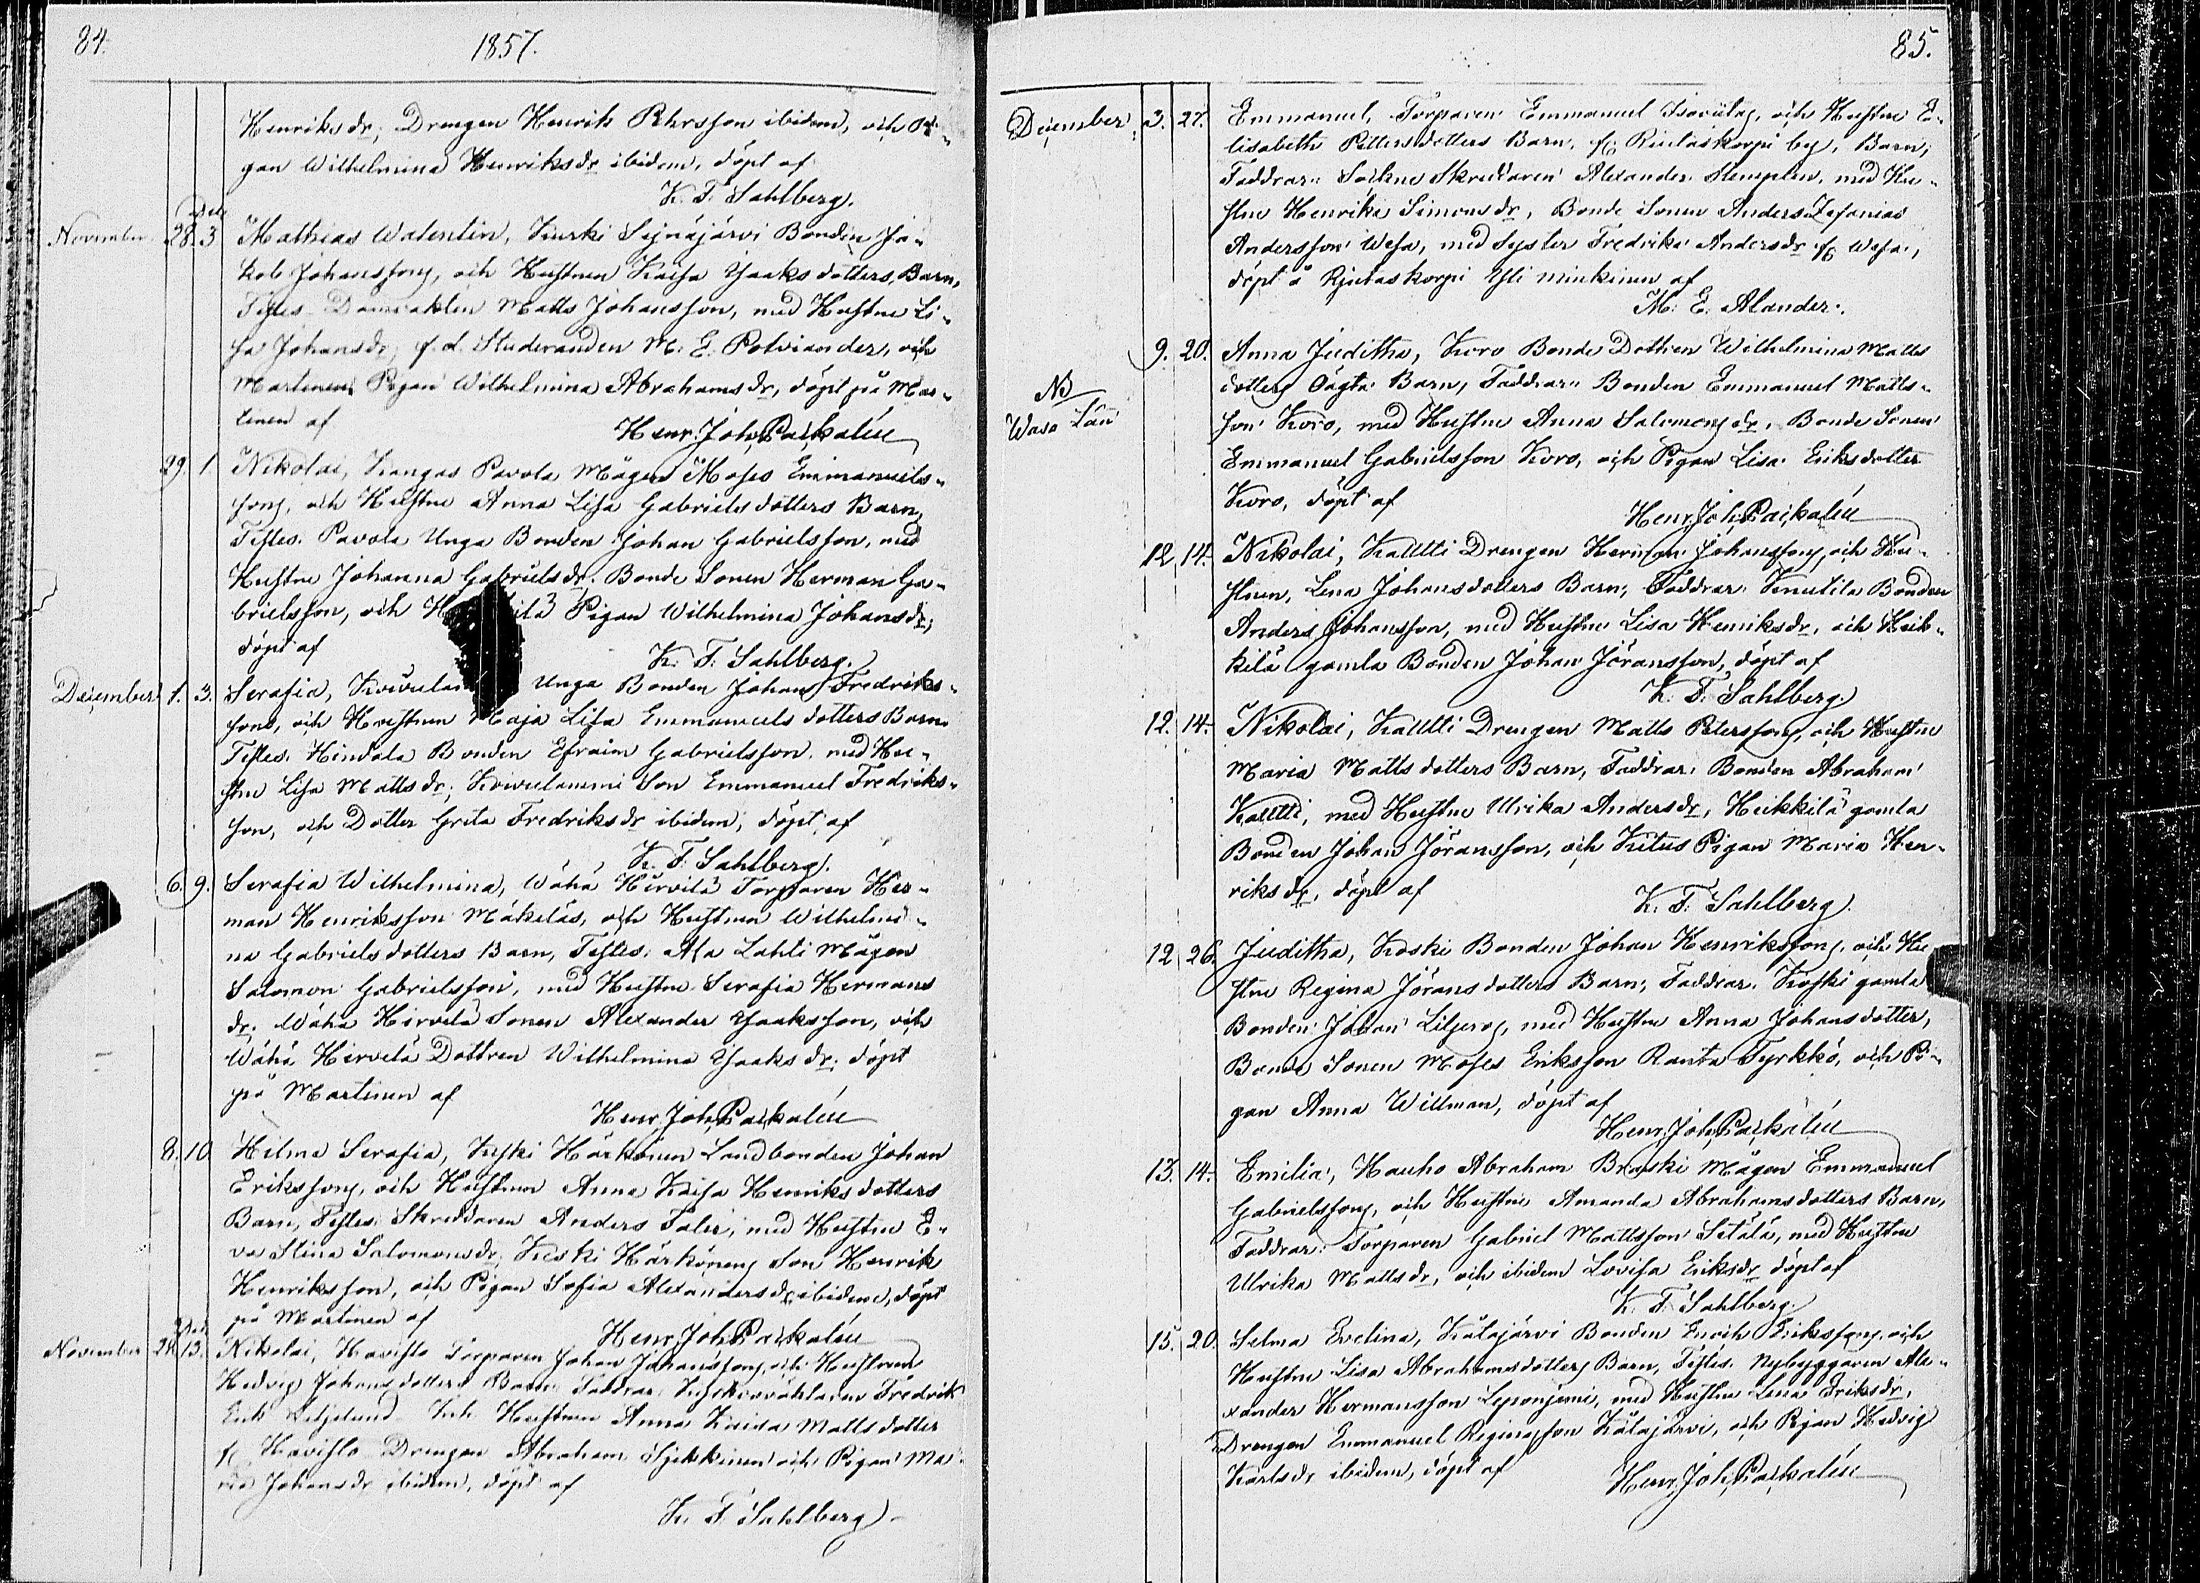 84.
1857.
Henriksdr, Drengen Henrik Påhrsson ibidem, och Pi-
gan Wilhelmina Henriksdr ibidem, döpt af
K. F. Sahlberg.
Dec.
November 28. 3 Mathias Walentin, Kurki Sejnäjärvi Bonden Ja-
kob Johanssons, och Hustrun Kaisa Isaksdotters Barn,
Testes Matts Johansson, med Hustru Li-
sa Johansdr, f.d. Studeranden M. E. Polviander, och
Martinen Pigan Wilhelmina Abrahamsdr, döpt på Mar-
tinen af
Henr. Joh. Paikalén
29. 1 Nikolai, Kangas Pavola Mågen Moses Emmanuels-
sons, och Hustru Anna Lisa Gabrielsdotters Barn,
Testes. Pavola Unga Bonden Johan Gabrielsson, med
Hustru Johanna Gabrielsdr. Bonde Sonen Herman Ga-
brielsson, och Pigan Wilhelmina Johansdr,
döpt af
K. F. Sahlberg.
December 1. 3. Serafia, Unga Bonden Johan Fredriks-
sons, och Hustrun Maja Lisa Emmanuelsdotters Barn
Testes. Hindala Bonden Efraim Gabrielsson, med Hu-
stru Lisa Mattsdr, Koivulammi Son Emmanuel Fredriks-
son, och Dotter Greta Fredriksdr ibidem, döpt af
K. F. Sahlberg.
6. 9. Serafia Wilhelmina, Wähä Hirvilä Torparen Her-
man Henriksson Mäkeläs, och Hustrun Wilhelmi-
na Gabrielsdotters Barn, Testes: Ala Lahti Mågen
Salomon Gabrielsson, med Hustru Serafia Hermans
dr. Wähä Hirvelä Sonen Alexander Isaksson, och
Wähä Hirvelä Dottren Wilhelmina Isaksdr; döpt
på Martinen af
Henr. Joh. Paikalén
8. 10 Hilma Serafia, Koski Härkönen Landbonden Johan
Erikssons, och Hustrun Anna Kaisa Henriksdotters
Barn, Testes: Skreddaren Anders Taler, med Hustru E-
va Stina Salomonsdr; Koski Härkönens Son Henrik
Henriksson, och Pigan Sofia Alexandersdr, ibidem, döpt
på Martinen af
Henr. Joh. Paikalén
Dec.
November 24. 13. Nikolai, Havisto Torparen Johan Johanssons, och Hustrun
Hedvig Johansdotters Barn: Faddrar: Fredrik
Erik Liljelund Hustrun Anna Kaisa Mattsdotter
Havisto Drengen Abraham och Pigan Ma-
ria Johansdr ibidem, döpt af
K. F. Sahlberg
85.
December 3. 27. Emmanuel, Torparen Emmanuel och Hustru E-
lisabeth Pettersdotters Barn, fr. Riutaskorpi by, Barn,
Faddrar: Sockne Skreddaren Alexander Stemplin, med Hu-
stru Henrika Simonsdr, Bonde Sonen Anders Zefanias
Andersson Wesa, med Syster Fredrika Andersdr fr. Wesa,
döpt å Riutaskorpi Yli minkinen af
M. E. Alander.
NB
Wasa Län
9. 20. Anna Juditha, Koro Bonde Dottren Wilhelmina Matts
dotters Oägta Barn, Faddrar: Bonden Emmanuel Matts-
son Koro, med Hustru Anna Salomonsdr, Bonde Sonen
Emmanuel Gabrielsson Koro, och Pigan Lisa Eriksdotter
Koro, döpt af
Henr. Joh. Paikalén
12 14. Nikolai, Kallti Drengen Herman Johanssons, och Hu-
strun, Lena Johansdotters Barn, Faddrar: Knutila Bonden
Anders Johansson, med Hustru Lisa Henriksdr, och Heik-
kilä gamla Bonden Johan Jöransson, döpt af
K. F. Sahlberg.
12. 14. Nikolai, Kallti Drengen Matts Peterssons, och Hustru
Maria Mattsdotters Barn, Faddrar: Bonden Abraham
Kallti, med Hustru Ulrika Andersdr, Heikkilä gamla
Bonden Johan Jöransson, och Pigan Maria Hen-
riksdr, döpt af
K. F. Sahlberg.
12 26. Juditha, Koski Bonden Johan Henrikssons, och Hu-
stru Regina Jöransdotters Barn, Faddrar: Koski gamla
Bonden Johan med Hustru Anna Johansdotter,
Bonde Sonen Moses Eriksson Ranta Tyrkkö, och Pi-
gan Anna Willman, döpt af
Henr. Joh. Paikalén
13. 14. Emilia, Hauho Abraham Mågen Emmanuel
Gabrielssons, och Hustru Amanda Abrahamsdotters Barn,
Faddrar: Torparen Gabriel Mattsson med Hustru
Ulrika Mattsdr, och ibidem Lovisa Eriksdr döpt af
K. F. Sahlberg.
15. 20. Selma Evelina, Kätajärvi Bonden Enoch Erikssons, och
Hustru Lisa Abrahamsdotters Barn, Testes: Nybyggaren Ale-
xander Hermansson med Hustru Lena Eriksdr,
Drengen Emmanuel Kätajärvi, och Pigan Hedvig
Karlsdr, ibidem, döpt af
Henr. Joh. Paikalén